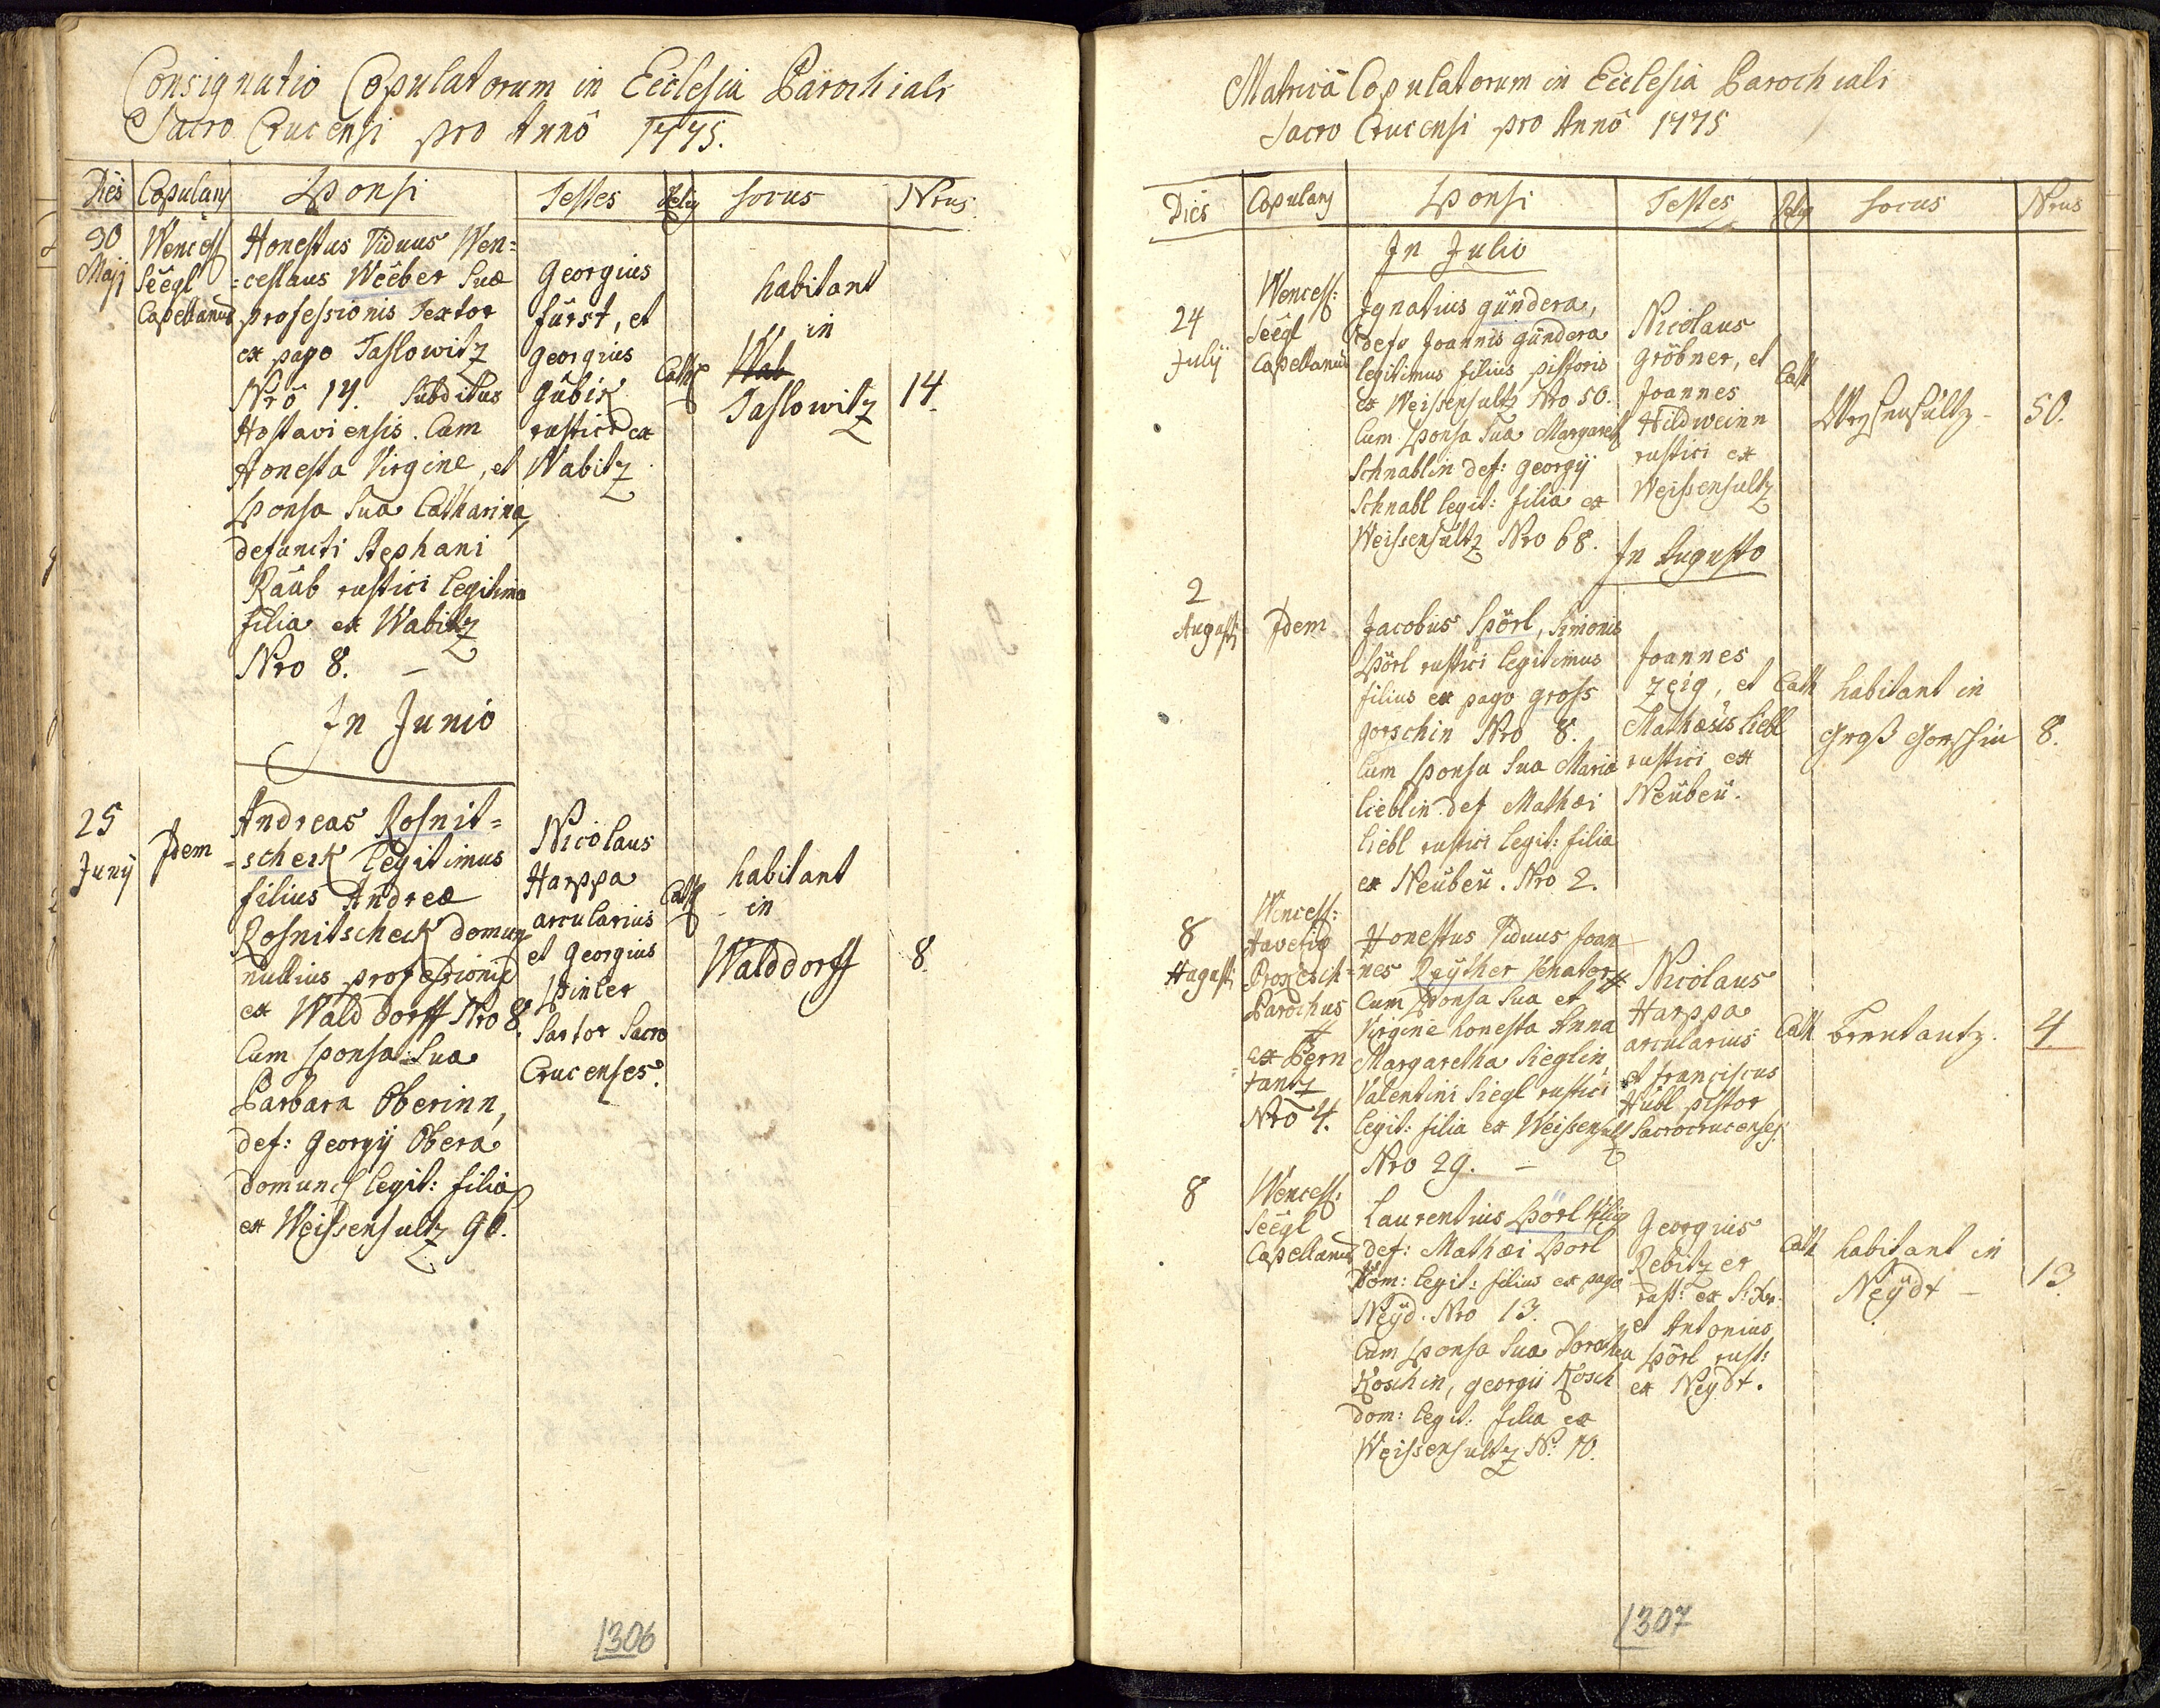 Consignatio Copulatorum in Ecclesia Parochiali
Sacro Crucensi pro Anno 1775.
Dies Copulans Sponsi Testes Relig Locus Nrus
30
Maji
Wencesl
Seegl
Capellanus
Honestus Viduus Wen=
=ceslaus Weeber Suae
professionis Textor
ex pago Taslowitz
Nro 14. Subditus
Hostaviensis. Cum
Honesta Virgine, et
Sponsa Sua Catharina,
defuncti Stephani
Raub rustici legitima
filia ex Wabitz
Nro 8. –
Georgius
fürst, et
Georgius
Gübik
rustici ex
Wabitz
Cath
habitant
in
Wab
Taslowitz
14.
In Junio
25
Junij
Idem
Andreas Rosnit=
=scheck legitimus
filius Andreæ
Rosnitscheck domun
nullius professionis
ex Walddorff Nro 8.
Cum sponsa Sua
Barbara Oberinn,
def: Georgij Obera
domunc legit: filia
ex Weissensultz 90.
Nicolaus
Harppa
arcularius
et Georgius
Pinter
Sartor Sacro
Crucenses.
Cath
habitant
in
Walddorff
8.
1306
Matrica Copulatorum in Ecclesia Parochiali
Sacro Crucensi pro Anno 1775
Dies Copulans Sponsi Testes Relig Locus Nrus
In Julio
24
Julij
Wencesl:
Seegl
Capellanus
Ignatius Gündera,
def: Joannis Gündera
legitimus filius pistoris
ex Weissensultz Nro 50.
Cum Sponsa Sua Margareth
Schnablin def: Georgij
Schnabl legit: filia ex
Weissensultz Nro 68.
Nicolaus
Gröbner, et
Joannes
Hildweinn
rustici ex
Weissensultz
Cath
Weysensultz –
50.
In Augusto
2
Augusti
Idem
Jacobus Spörl, Simonis
Spörl rustici legitimus
filius ex pago gross
gorschin Nro 8.
Cum Sponsa Sua Maria
Lieblin def Mathæi
Liebl rustici legit: filia
ex Neübeü. Nro 2.
Joannes
Zeig, et
Mathæis Liebl
rustici ex
Neübeü.
Cath
habitant in
Groß Gorschin
8.
8
Augusti
Wencesl:
Parochus
ex Bern
tantz
Nro 4.
Honestus Viduus Joan
=nes Reyther Venator
Cum Sponsa Sua et
Virgine honesta Anna
Margaretha Sieglin,
Valentini Siegl rustici
legit: filia ex Weissensultz
Nro 29. –
Nicolaus
Harppa
arcularius
et franciscus
Hübl pistor
Sacrocrucenses.
Cath
Berntantz.
4.
8
Wencesl:
Seegl
Capellanus
Laurentius Spörl filig
def: Mathæi Spörl
Dom: legit: filius ex pago
Neyd. Nro 13.
Cum Sponsa Sua Dorothea
Koschin, georgii Kosch
dom: legit: filia ex
Weissensultz No 70.
Georgius
Rebitzer
rust: ex S: Kr:
et Antonius
Spörl rust:
ex Neydt.
Cath
habitant in
Neydt –
13
1307